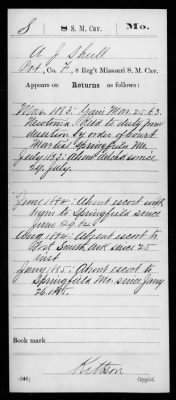 S | 8 S. M. Cav. | Mo.
A J Shull
Pvt, Co. F, 8 Reg't Missouri S. M. Cav.
Appears on Returns as follows:
Mar. 1863: Gain Mar. 25. 63.
Newtonia. Retd to duty from
desertion by order of Court
Martial Springfield Mo.
July 1863: Absent since
24 July.
June 1864: Absent escort with
to Springfield since
June 29, 64
Aug. 1864: Absent escort to
Fort Smith Ark since 25
inst
Jany 1865: Absent escort to
Springfield Mo. since Jany
26. 1865.
Book mark
Kitson
(546) Copyist.